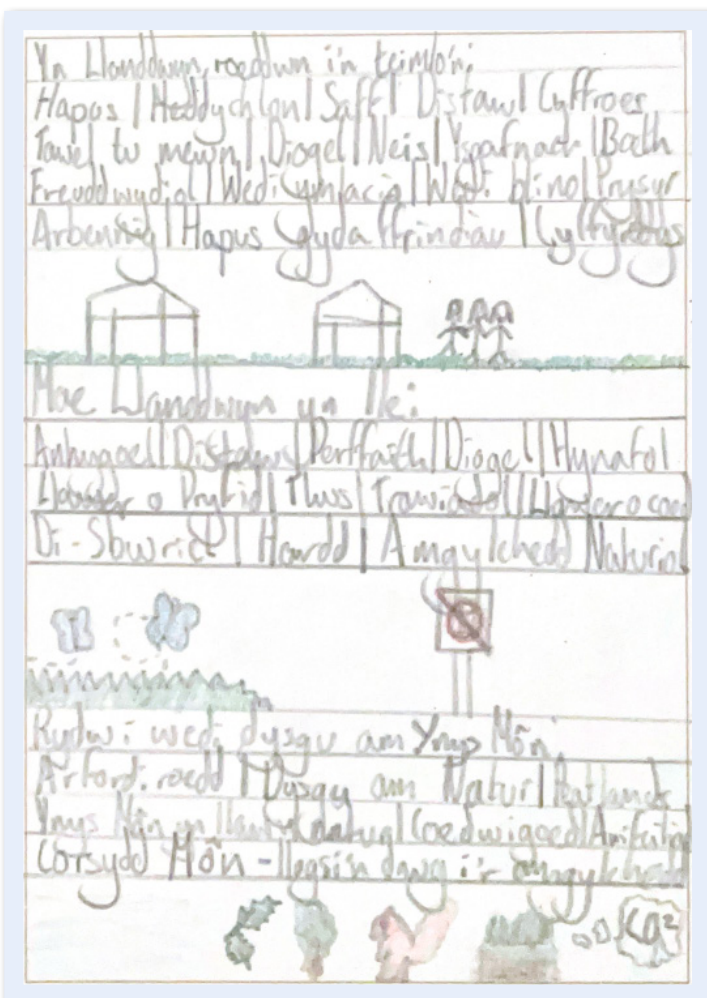 Yn Llanddwyn, roeddwn i'n teimlo'n:
Hapus | Heddychlon | Saff | Distaw | Cyffroes
Tawel tu mewn | Diogel | Neis | Ysgafnach | Balch
Freuddwydiol | Wedi ymlacio | Wedi blino | Prysur
Arbennig | Hapus gyda ffrindiau | Cyffyrddys
Mae Llanddwyn yn lle:
Anhygoel | Distaw | Perffaith | Diogel | Hynafol
Llawer o Pryfid | Tlws | Trawiadol | Llawer o coed
Di-Sbwriel | Hardd | Amgylchedd Naturiol
Rydw i wedi dysgu am Ynys Môn
Arfordiroedd | Dysgu am Natur | Peatlands
Ynys Môn yn llawn natur | Coedwigoed | Anifeilia
Corsydd Môn - llesin dawg i'r amgylchedd